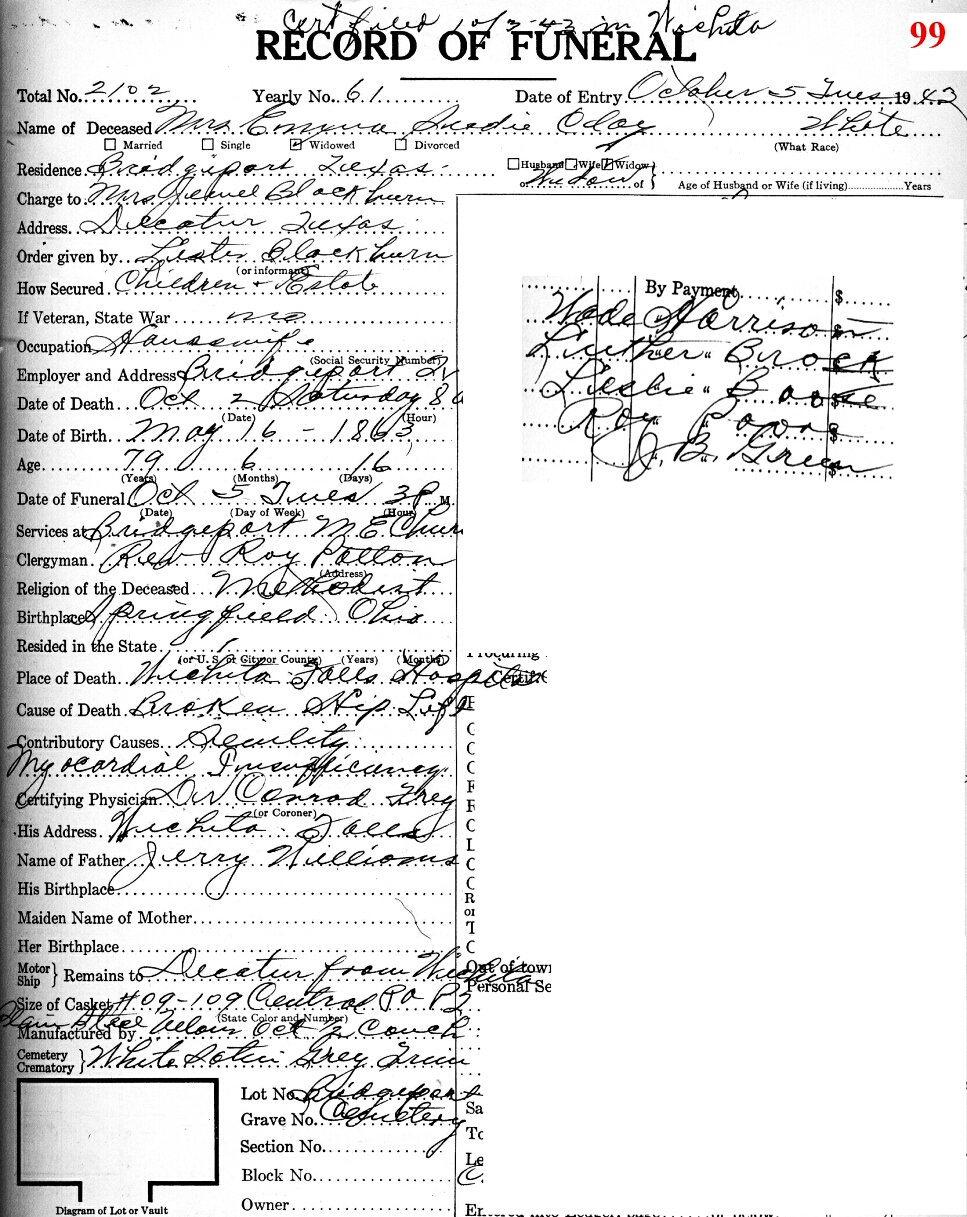 Cert filed 10/3-43 in Wichita
99
RECORD OF FUNERAL
Total No. 2102 Yearly No. 61 Date of Entry October 5 Tues 1943
Name of Deceased Mrs Emma Oday White
Married Single Widowed Divorced (What Race)
Residence Bridgeport Texas Husband Wife Widow or Widow of Age of Husband or Wife (if living) Years
Charge to Mrs Jewel Blackburn
Address. Decatur Texas
Order given by Lester Blackburn
(or informant)
How Secured. Children + Estate
If Veteran, State War no
Occupation Housewife
(Social Security Number)
Employer and Address Bridgeport
Date of Death Oct 2 Saturday 8
(Date) (Hour)
Date of Birth May 16 - 1863
Age 79 6 16
(Years) (Months) (Days)
Date of Funeral Oct 5 Tues 3 P. M.
(Date) (Day of Week) (Hour)
Services at Bridgeport M.E. Chur
Clergyman. Rev Roy Patton
(Address)
Religion of the Deceased Methodist
Birthplace Springfield Ohio
Resided in the State
(or U. S. or City or County) (Years) (Months)
Place of Death Wichita Falls Hospital
Cause of Death Broken Hip Left
Contributory Causes Senility
Myocardial Insufficiency
Certifying Physician Dr Conrad Frey
(or Coroner)
His Address Wichita Falls
Name of Father Jerry Williams
His Birthplace
Maiden Name of Mother
Her Birthplace
Motor Ship } Remains to Decatur from Wichita
Size of Casket #09-109 Central
(State Color and Number)
Manufactured by Oct 1/2 Couch
Cemetery Crematory } White Satin Grey Trim
Lot No. Bridgeport
Grave No. Cemetery
Section No.
Block No.
Owner
Diagram of Lot or Vault
By Payment $
Wade Harrison $
Luther Brock
Leslie Boase $
Roy $
J. B. Green $
Procuring
Out of town
Personal Se
Sa
To
Le